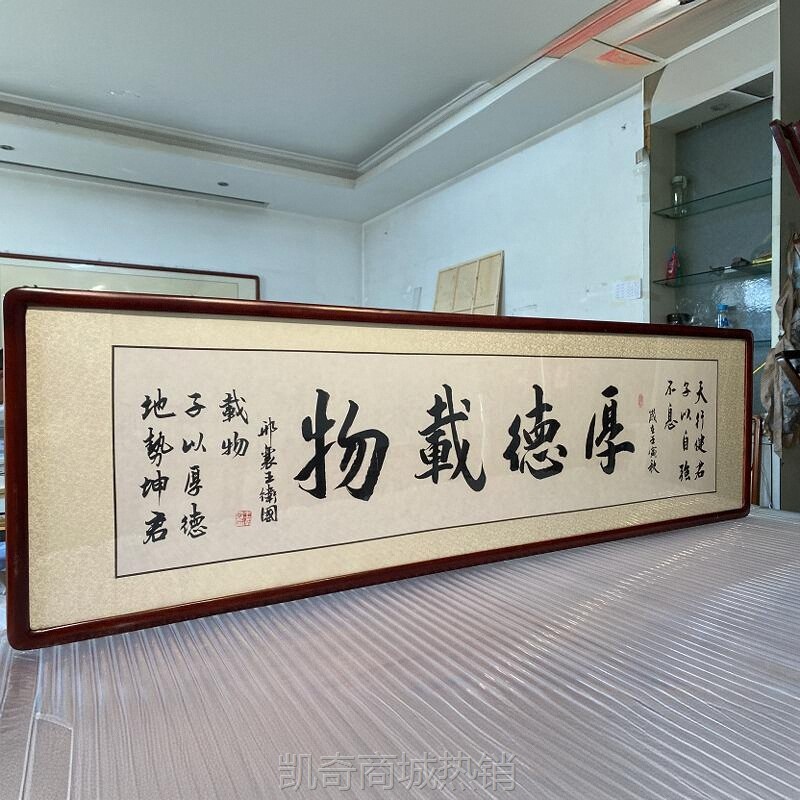 天行健君
子以自強
不息
歲在壬寅秋
厚德載物
邢襄王衛國
地勢坤君
子以厚德
載物
凯奇商城热销